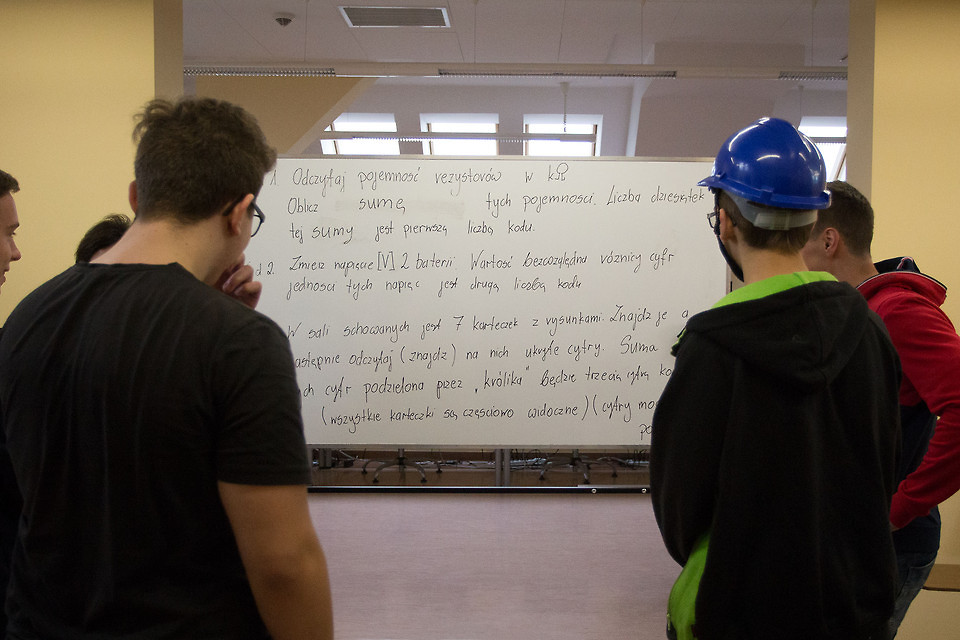 1 Odczytaj pojemność rezystorów w kΩ
Oblicz sumę tych pojemności. Liczba dziesiątek
tej sumy jest pierwszą liczbą kodu.
d 2. Zmierz napięcie [V] 2 baterii. Wartość bezwzględna różnicy cyfr
jedności tych napięć jest drugą liczbą kodu
W sali schowanych jest 7 karteczek z rysunkami. Znajdź je a
astępnie odczytaj (znajdź) na nich ukryte cyfry. Suma
ch cyfr podzielona przez „królika” będzie trzecią cyfrą ko
(wszystkie karteczki są częściowo widoczne) (cyfry mo